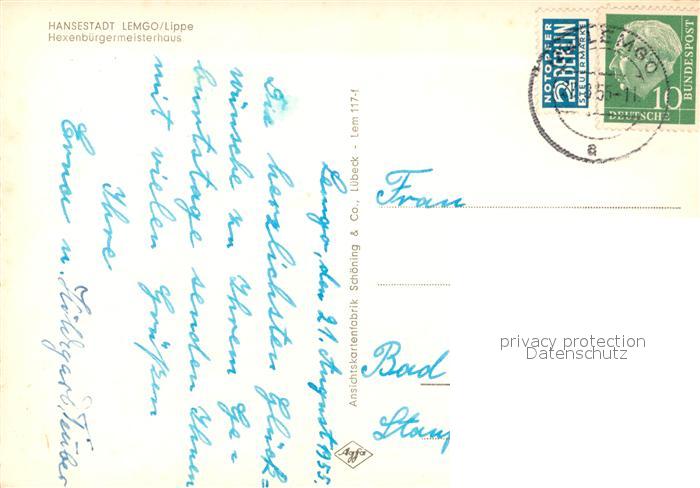 HANSESTADT LEMGO/Lippe
Hexenbürgermeisterhaus
NOTOPFER
2 BERLIN
STEUERMARKE
10
DEUTSCHE
BUNDESPOST
LEMGO
a
Lemgo, den 21. August 1955.
Die herzlichsten Glück=
wünsche zu Ihrem Ge=
burtstage senden Ihnen
mit vielen Grüßen
Ihre
Erna u. Hildegard Teuber
Ansichtskartenfabrik Schöning & Co., Lübeck - Lem 117-f
Agfa
Frau
Bad
privacy protection
Datenschutz